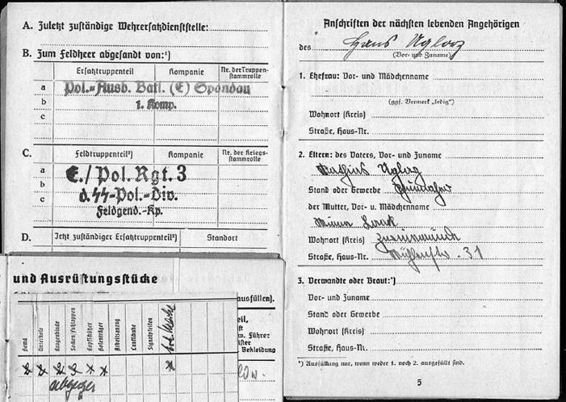 A. Zuletzt zuständige Wehrersatzdienststelle:
B. Zum Feldheer abgesandt von:¹)
Ersatztruppenteil Kompanie Nr. der Truppen-
stammrolle
a Pol.-Ausb. Batl. (E) Spandau
b 1. Komp.
c
C. Feldtruppenteil²) Kompanie Nr. der Kriegs-
stammrolle
a E./Pol. Rgt. 3
b d. SS-Pol.-Div.
c Feldgend.-Kp.
D. Jetzt zuständiger Ersatztruppenteil³) Standort
und Ausrüstungsstücke
ausfüllen).
Führer
Bekleidung
Anschriften der nächsten lebenden Angehörigen
des Hans
(Vor- und Zuname)
1. Ehefrau: Vor- und Mädchenname
(ggf. Vermerk „ledig")
Wohnort (Kreis)
Straße, Haus-Nr.
2. Eltern: des Vaters, Vor- und Zuname
Mathias
Stand oder Gewerbe
der Mutter, Vor- u. Mädchenname
Wohnort (Kreis)
Straße, Haus-Nr. 31
3. Verwandte oder Braut:*)
Vor- und Zuname
Stand oder Gewerbe
Wohnort (Kreis)
Straße, Haus-Nr.
*) Ausfüllung nur, wenn weder 1. noch 2. ausgefüllt sind.
5